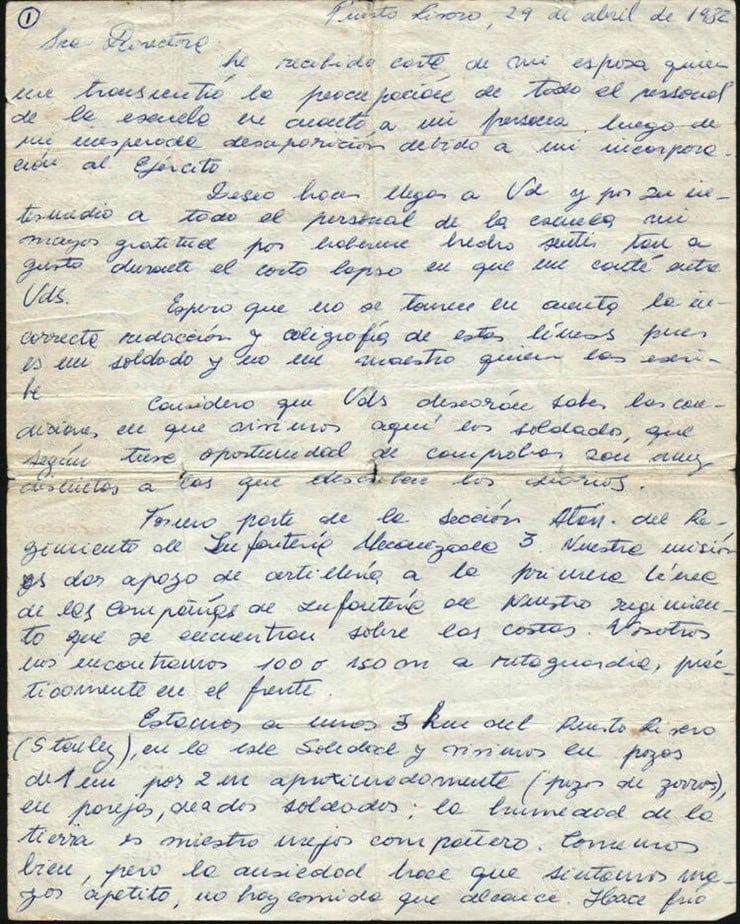 1
Puerto Rivero, 29 de abril de 1982
Sra Directora:
he recibido carta de mi esposa quien
me transmitió la preocupación de todo el personal
de la escuela en cuanto a mi persona luego de
mi inesperada desaparición debido a mi incorpora-
ción al Ejército.
Deseo hacer llegar a Vd y por su in-
termedio a todo el personal de la escuela mi
mayor gratitud por haberme hecho sentir tan a
gusto durante el corto lapso en que me conté entre
Vds.
Espero que no se tomen en cuenta la in-
correcta redacción y caligrafía de estas líneas pues
es un soldado y no un maestro quien las escri-
be
Considero que Vds desearán saber las con-
diciones en que vivimos aquí los soldados, que
según tuve oportunidad de comprobar son muy
distintas a las que describen los diarios.
Formo parte de la sección del Re-
gimiento de Infantería Mecanizada 3. Nuestra misión
es dar apoyo de artillería a la primera línea
de las Compañías de Infantería de Nuestro regimien-
to que se encuentran sobre las costas. Nosotros
nos encontramos 100 o 150 m a retaguardia, prác-
ticamente en el frente.
Estamos a unos 3 km del Puerto Rivero
(Stanley), en la isla Soledad y vivimos en pozos
de 1 m por 2 m aproximadamente (pozos de zorros),
en parejas, de a dos soldados; la humedad de la
tierra es nuestro mejor compañero. Comemos
bien, pero la ansiedad hace que sintamos ma-
yor apetito, no hay comida que alcance. Hace frío